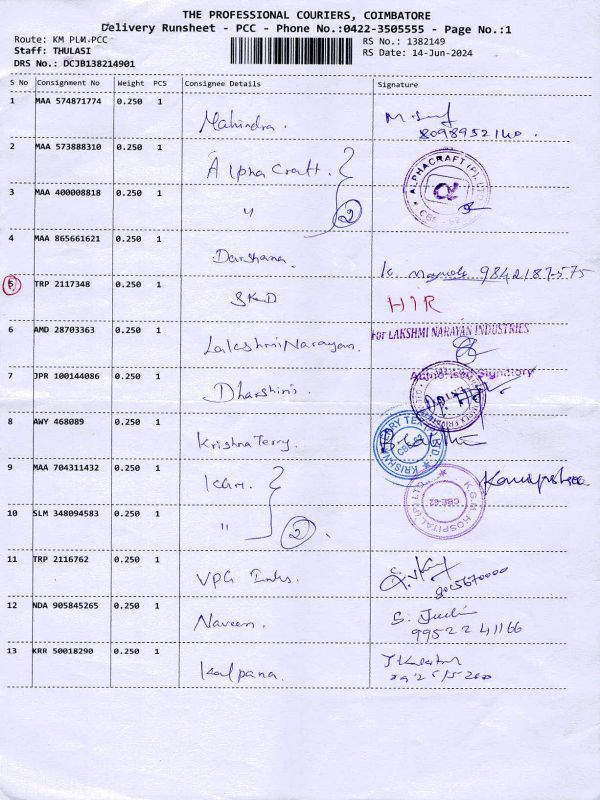 THE PROFESSIONAL COURIERS, COIMBATORE
Delivery Runsheet - PCC - Phone No.:0422-3505555 - Page No.:1
Route: KM PLM-PCC
Staff: THULASI
DRS No.: DCJB138214901
RS No.: 1382149
RS Date: 14-Jun-2024
S No Consignment No Weight PCS Consignee Details Signature
1 MAA 574871774 0.250 1 Mahindra.
8098952140.
2 MAA 573888310 0.250 1 Alpha Craft.
ALPHACRAFT (P) LTD
3 MAA 400008818 0.250 1 " 2
4 MAA 865661621 0.250 1 Darshana 9842187575
5 TRP 2117348 0.250 1 SKD HIR
6 AMD 28703363 0.250 1 Lakshmi Narayan.
For LAKSHMI NARAYAN INDUSTRIES
Authorised Signatory
7 JPR 100144086 0.250 1 Dharshini
8 AWY 468089 0.250 1 Krishna Terry.
9 MAA 704311432 0.250 1 KGM.
K.G.M HOSPITAL (P) LTD
CBE-62
10 SLM 348094583 0.250 1 " 2
11 TRP 2116762 0.250 1 VPG Inks.
12 NDA 905845265 0.250 1 Naveen.
99522 41166
13 KRR 50018290 0.250 1 Kalpana.